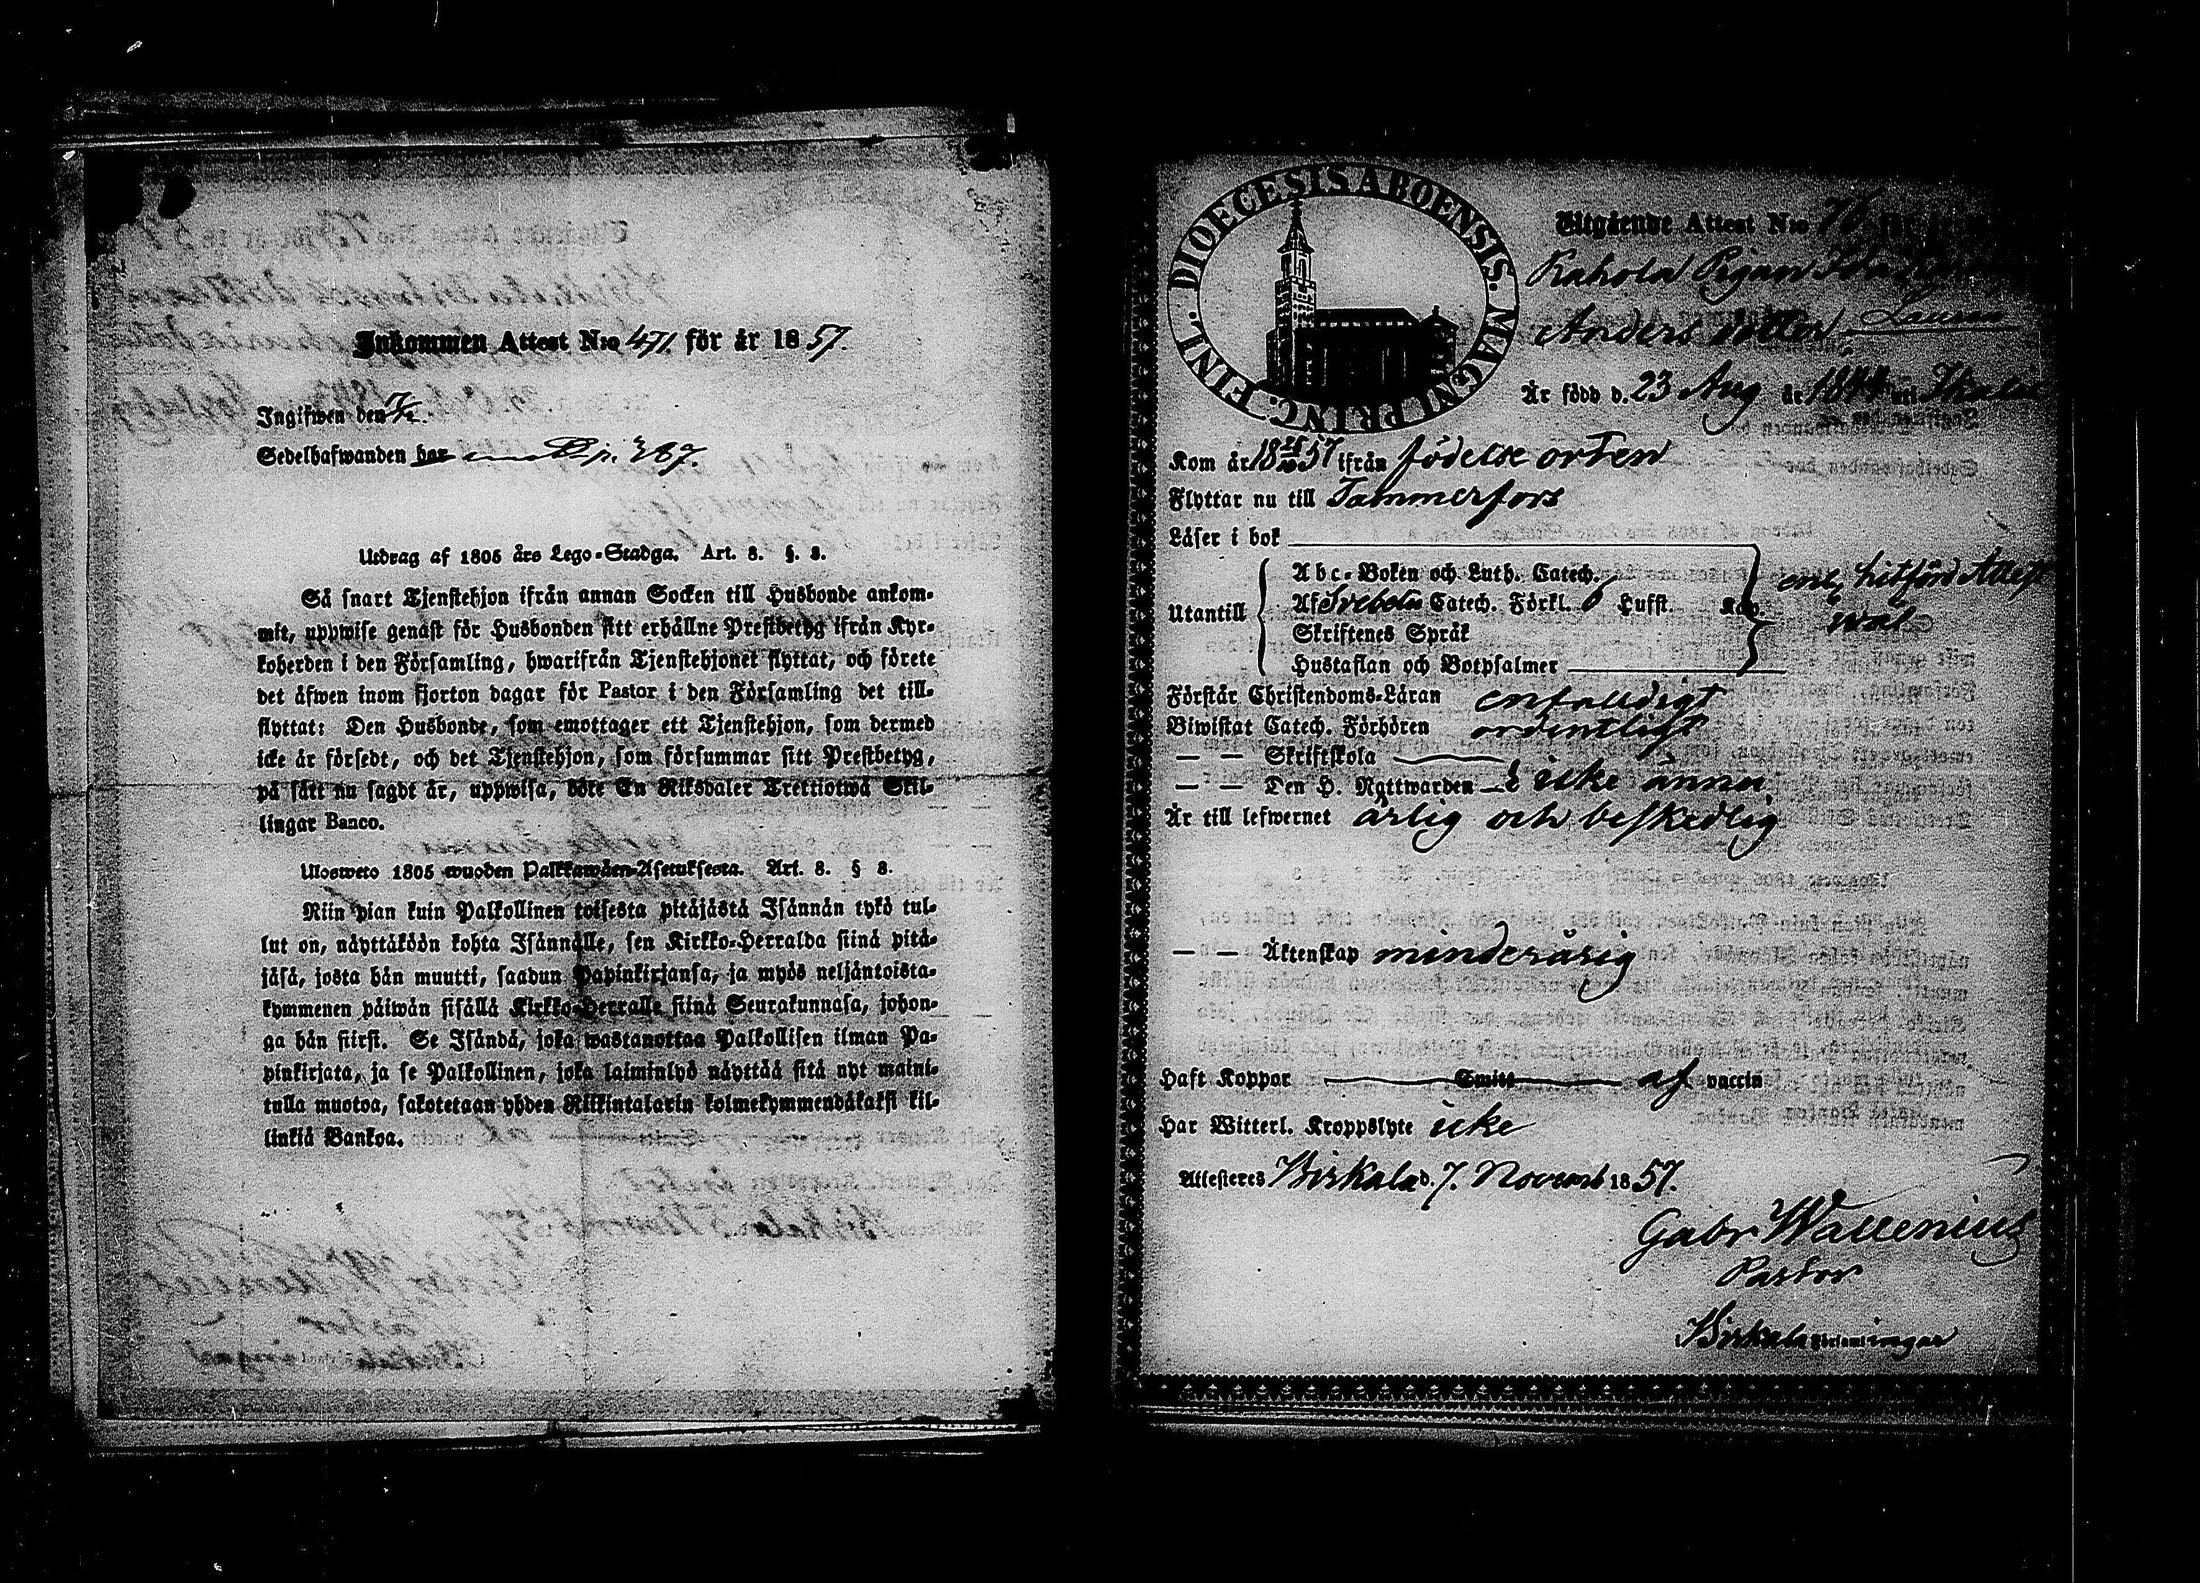 Inkommen Attest N:o 471. för år 1857.
Ingifwen den 7/12.
Sedelhafwanden har p. 387.
Utdrag af 1805 års Lego-Stadga. Art. 8. §. 8.
Så snart Tjenstehjon ifrån annan Socken till Husbonde ankom-
mit, uppwise genast för Husbonden sitt erhållne Prestbetyg ifrån Kyr-
koherden i den Församling, hwarifrån Tjenstehjonet flyttat, och förete
det äfwen inom fjorton dagar för Pastor i den Församling det till-
flyttat: Den Husbonde, som emottager ett Tjenstehjon, som dermed
icke är försedt, och det Tjenstehjon, som försummar sitt Prestbetyg,
på sätt nu sagdt är, uppwisa, böte En Riksdaler Trettiotwå Skil-
lingar Banco.
Ulosweto 1805 wuoden Palkkawäen-Asetuksesta. Art. 8. § 8.
Niin pian kuin Palkollinen toisesta pitäjästä Isännän tykö tul-
lut on, näyttäköön kohta Isännälle, sen Kirkko-Herralda siinä pitä-
jäsä, josta hän muutti, saadun Papinkirjansa, ja myös neljäntoista-
kymmenen päiwän sisällä Kirkko-Herralle siinä Seurakunnasa, johon-
ga hän siirsi. Se Isändä, joka wastanottaa Palkollisen ilman Pa-
pinkirjata, ja se Palkollinen, joka laiminlyö näyttää sitä nyt maini-
tulla muotoa, sakotetaan yhden Riikintalarin kolmekymmendäkaksi kil-
linkiä Bankoa.
DIOECESIS ABOENSIS. MAGNI PRINC. FINL.
Utgående Attest N:o 76
Kahola Pigan
Anders dotter
Är född d. 23 Aug år 1844 uti
Kom år 1857 ifrån födelse orten
Flyttar nu till Tammerfors
Läser i bok
Utantill
Abc-Boken och Luth. Catech.
Af Svebelii Catech. Förkl. 6 Hufst. Kap.
Skriftenes Språk
Hustaflan och Botpsalmer
enl. hitförd Attest
wäl
Förstår Christendoms-Läran enfaldigt
Biwistat Catech. Förhören ordentligt
— — Skriftskola
— — Den H. Nattwarden icke ännu
Är till lefwernet ärlig och beskedlig
— — Äktenskap minderårig
Haft Koppor Smitt af vaccin
Har Witterl. Kroppslyte icke
Attesteres Birkala d. 7. Novemb 1857.
Gabr Wallenius
Pastor
Birkala